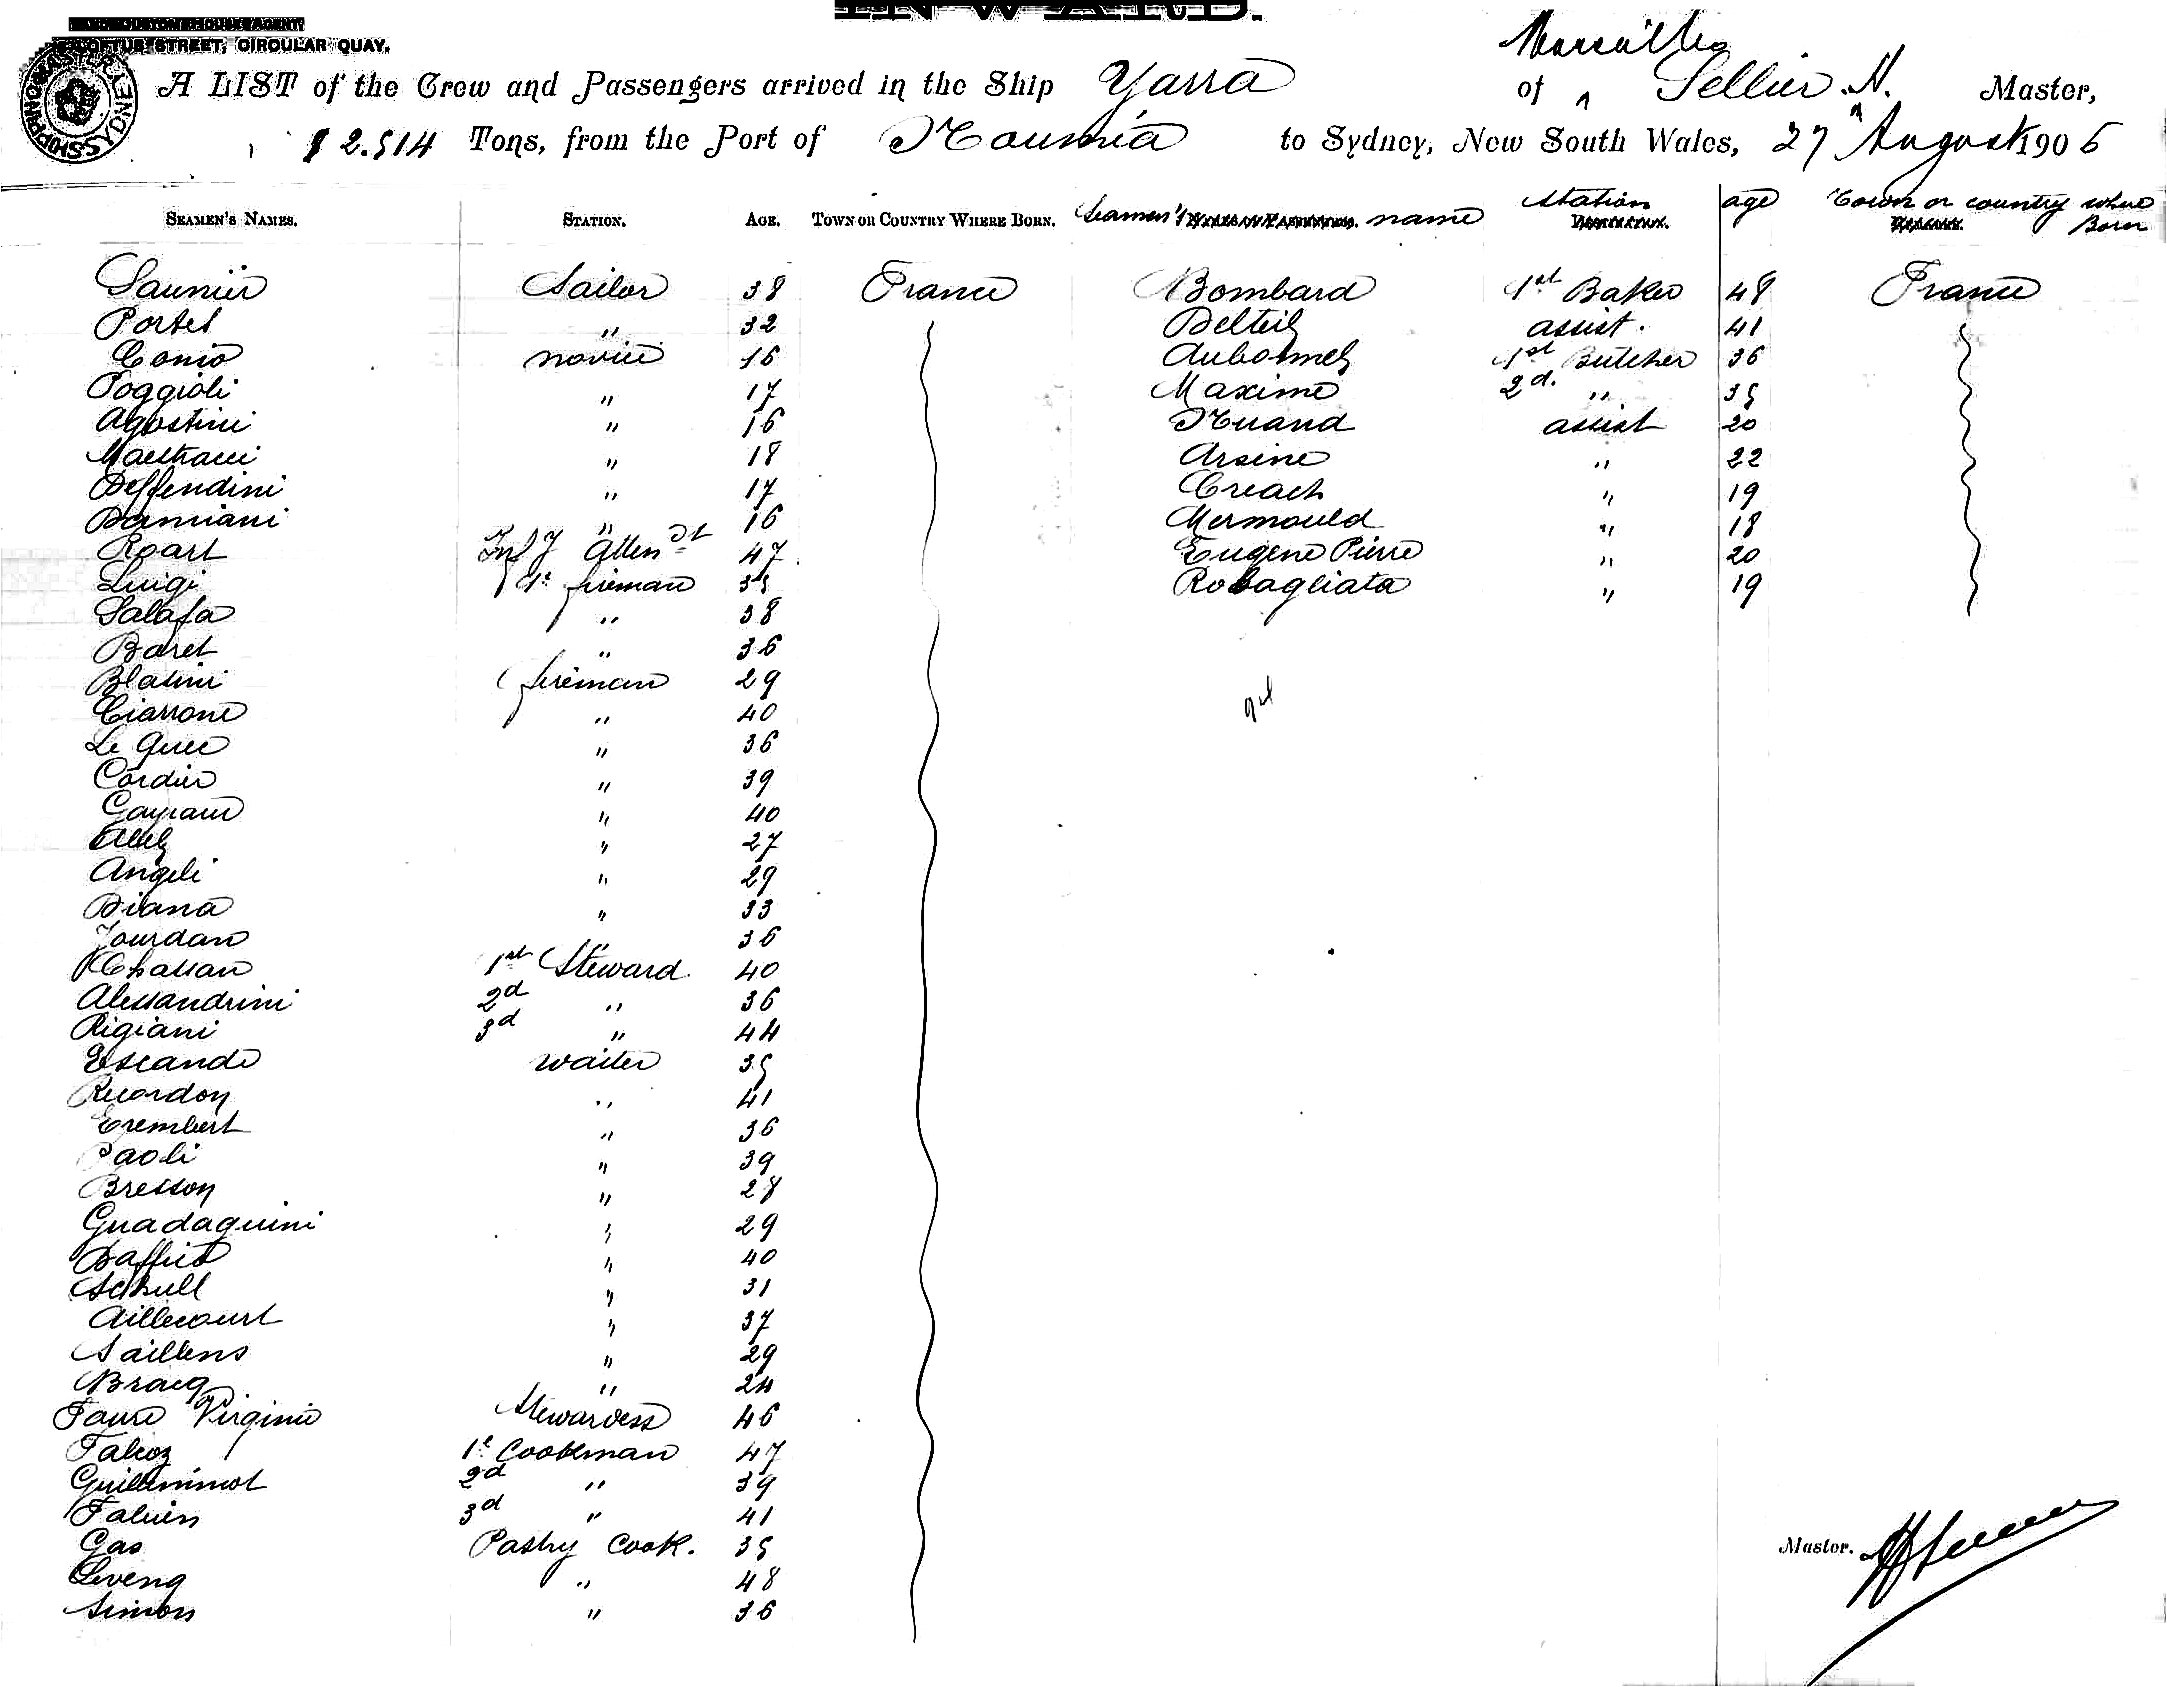 INWARD.
CUSTOM HOUSE AGENT
LOFTUS STREET, CIRCULAR QUAY.
SHIPPING MASTER SYDNEY
Marseilles
A LIST of the Crew and Passengers arrived in the Ship Yarra of Sellier. H. Master,
2.514 Tons, from the Port of Noumia to Sydney, New South Wales, 27 August 1906
SEAMEN'S NAMES. STATION. AGE. TOWN OR COUNTRY WHERE BORN. Seamen's name Station age Town or country where Born
Saunier Sailor 38 France Bombard 1st Baker 48 France
Portet " 32 Delteil assist. 41
Conio novice 16 1st Butcher 36
Poggioli " 17 Maxime 2d. " 35
Agostini " 16 Nuand assist 20
" 18 Arsene " 22
Deffendini " 17 Creach " 19
Damiani " 16 Mermould " 18
Roart Atten dt 47 Eugene Pierre " 20
Luigi 1st fireman 35 Robagliata " 19
Salafa " 38
Baret " 36
Blasini fireman 29
Ciarrone " 40
Le Guee " 36
Cordier " 39
" 40
" 27
Angeli " 29
Diana " 33
Jourdan " 36
Chassan 1st Steward. 40
Alessandrini 2d " 36
Rigiani 3d " 44
Escande waiter 35
Recordon " 41
Erembert " 36
Paoli " 39
Bresson " 28
Guadagnini " 29
Daffico " 40
Schull " 31
Aillecourt " 37
Saillens " 29
Bracq " 24
Faure Virginie Stewardess 46
Falcoz 1t Cookman 47
Guilleminot 2d " 39
Fabien 3d " 41
Gas Pastry Cook. 35
Leveng " 48
Simon " 36
Master.